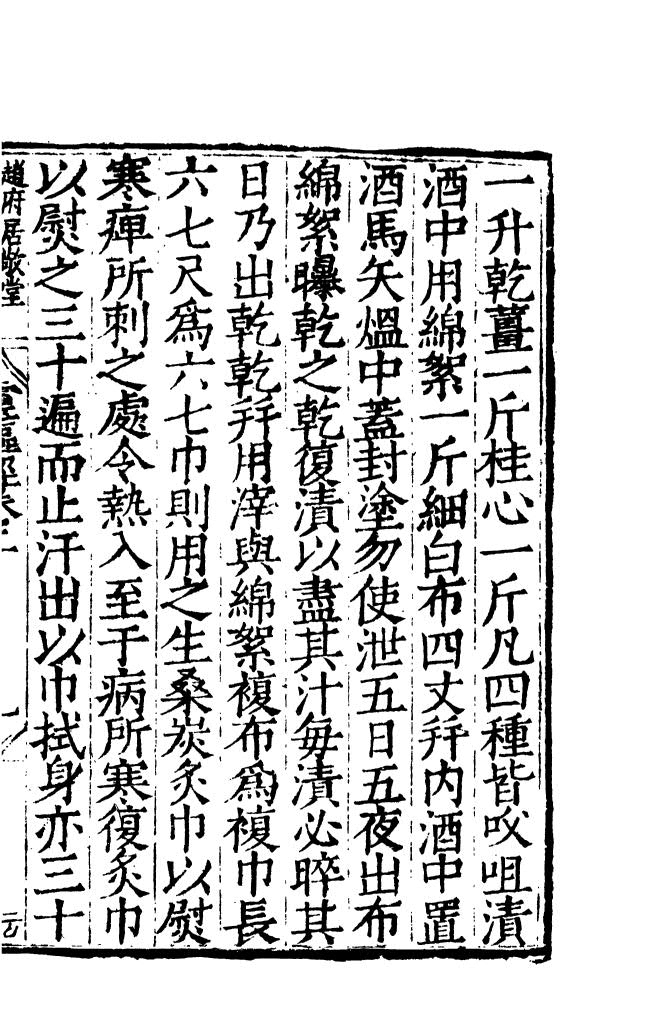 一升乾薑一斤桂心一斤凡四種皆㕮咀漬
酒中用綿絮一斤細白布四丈幷內酒中置
酒馬矢熅中蓋封塗勿使泄五日五夜出布
綿絮曝乾之乾復漬以盡其汁每漬必晬其
日乃出乾乾幷用滓與綿絮複布爲複巾長
六七尺爲六七巾則用之生桑炭炙巾以熨
寒痺所刺之處令熱入至于病所寒復炙巾
以熨之三十遍而止汗出以巾拭身亦三十
趙府居敬堂